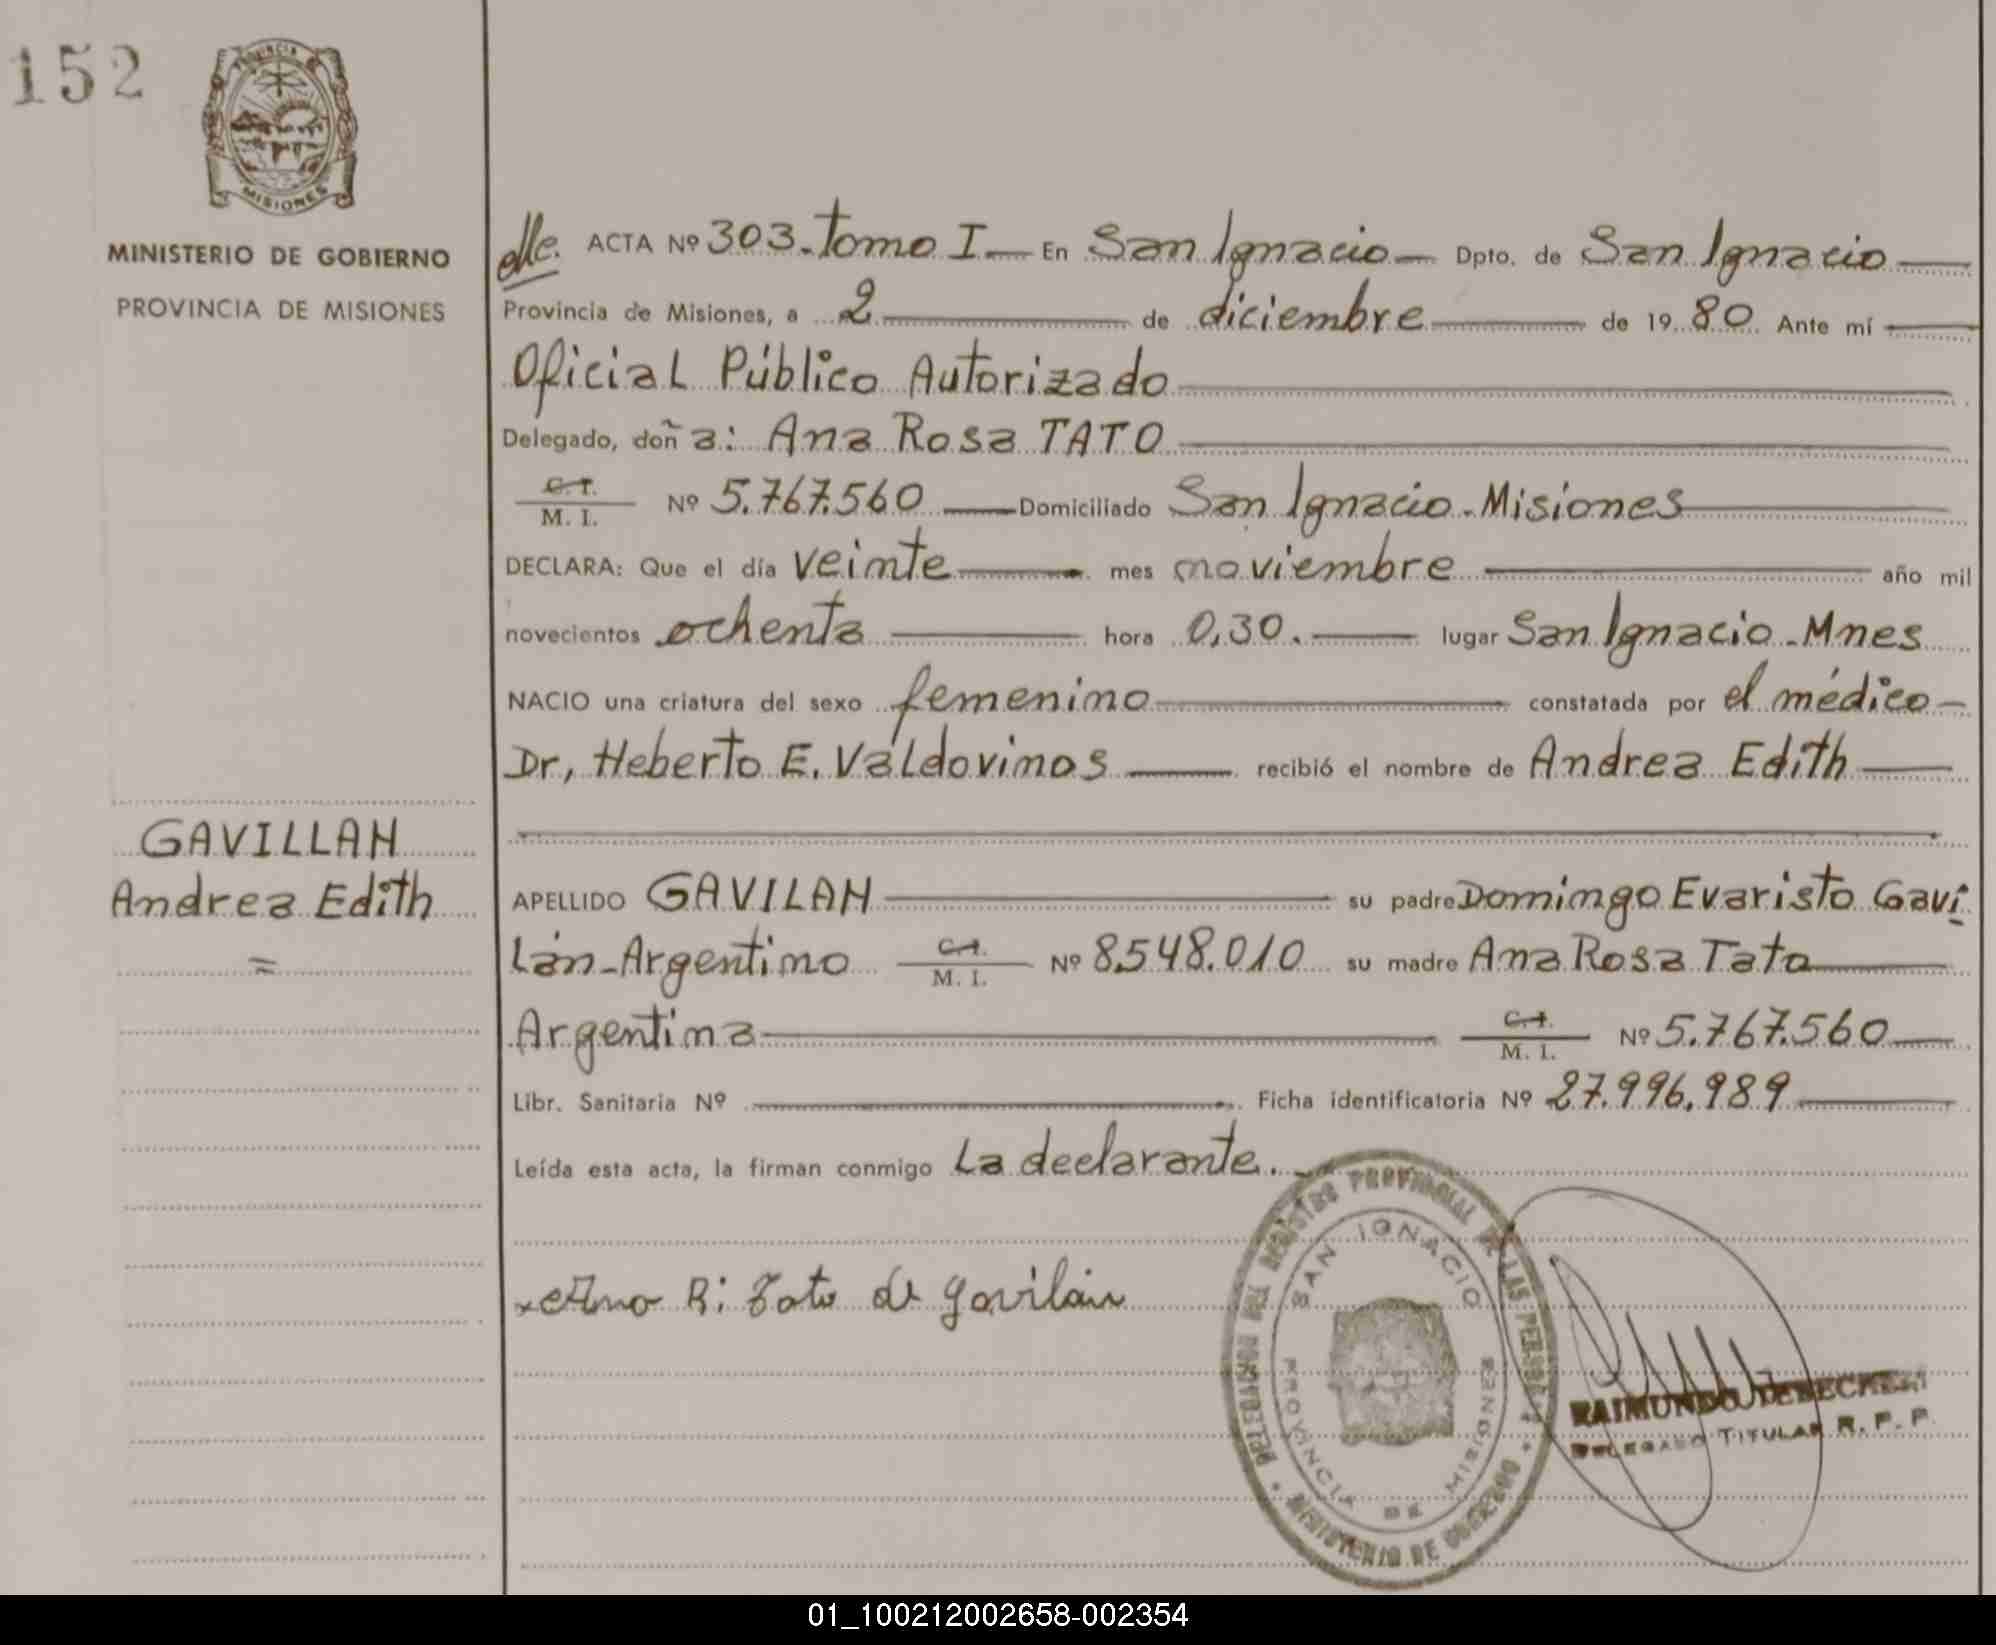 152
PROVINCIA
MISIONES
MINISTERIO DE GOBIERNO
PROVINCIA DE MISIONES
GAVILLAN
Andrea Edith
=
ACTA Nº 303. Tomo I. En San Ignacio Dpto. de San Ignacio
Provincia de Misiones, a 2 de diciembre de 1980 Ante mí
Oficial Público Autorizado
Delegado, doña: Ana Rosa TATO
C. I.
M. I. Nº 5.767.560 Domiciliado San Ignacio - Misiones
DECLARA: Que el día veinte mes noviembre año mil
novecientos ochenta hora 0,30. lugar San Ignacio - Mnes
NACIO una criatura del sexo femenino constatada por el médico
Dr, Heberto E. Valdovinos recibió el nombre de Andrea Edith
APELLIDO GAVILAN su padre Domingo Evaristo Gavi
lán - Argentino C.I. M. I. Nº 8.548.010 su madre Ana Rosa Tato
Argentina C.I. M. I. Nº 5.767.560
Libr. Sanitaria Nº Ficha identificatoria Nº 27.996.989
Leída esta acta, la firman conmigo La declarante.
x Ana R: Tato de Gavilán
DELEGACION DEL REGISTRO PROVINCIAL DE LAS PERSONAS
SAN IGNACIO
PROVINCIA DE MISIONES
MINISTERIO DE GOBIERNO
RAIMUNDO
DELEGADO TITULAR R. P. P.
01_100212002658-002354